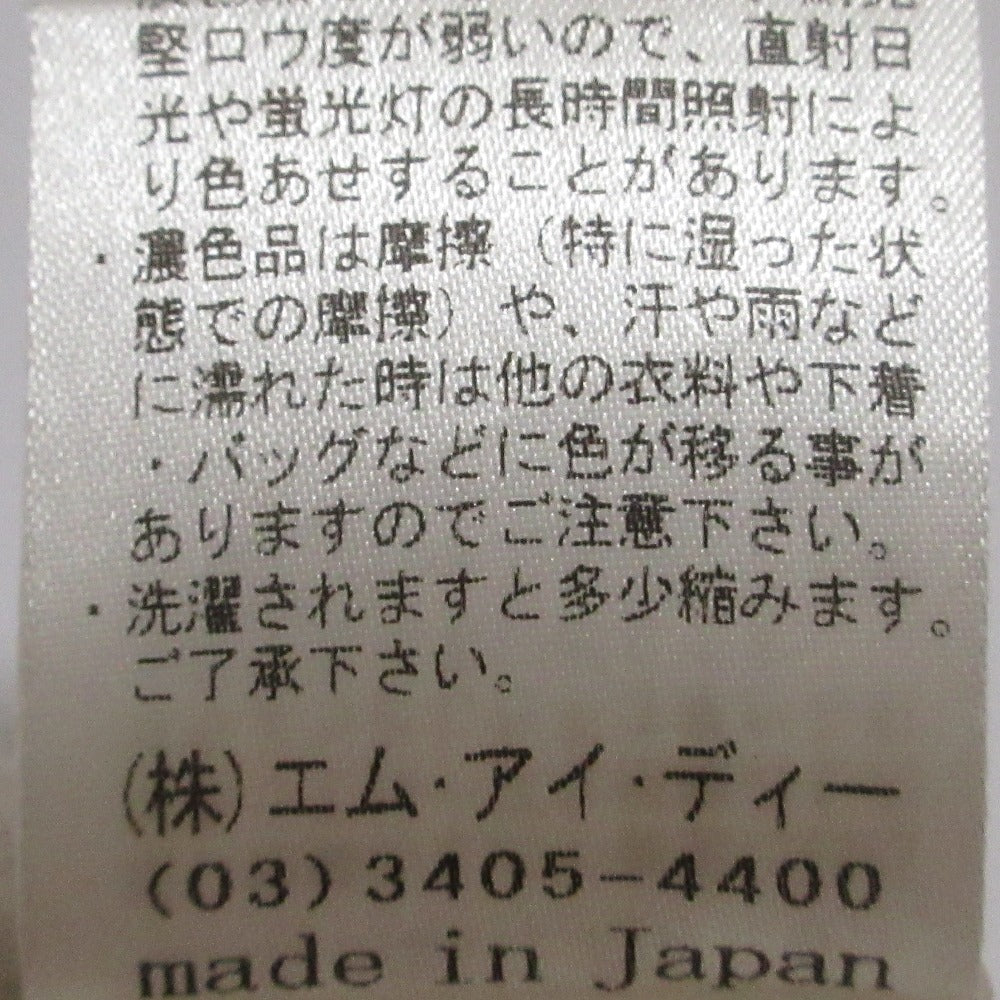 堅ロウ度が弱いので、直射日
光や蛍光灯の長時間照射によ
り色あせすることがあります。
・濃色品は摩擦（特に湿った状
態での摩擦）や、汗や雨など
に濡れた時は他の衣料や下着
・バッグなどに色が移る事が
ありますのでご注意下さい。
・洗濯されますと多少縮みます。
ご了承下さい。
(株)エム・アイ・ディー
(03)3405-4400
made in Japan